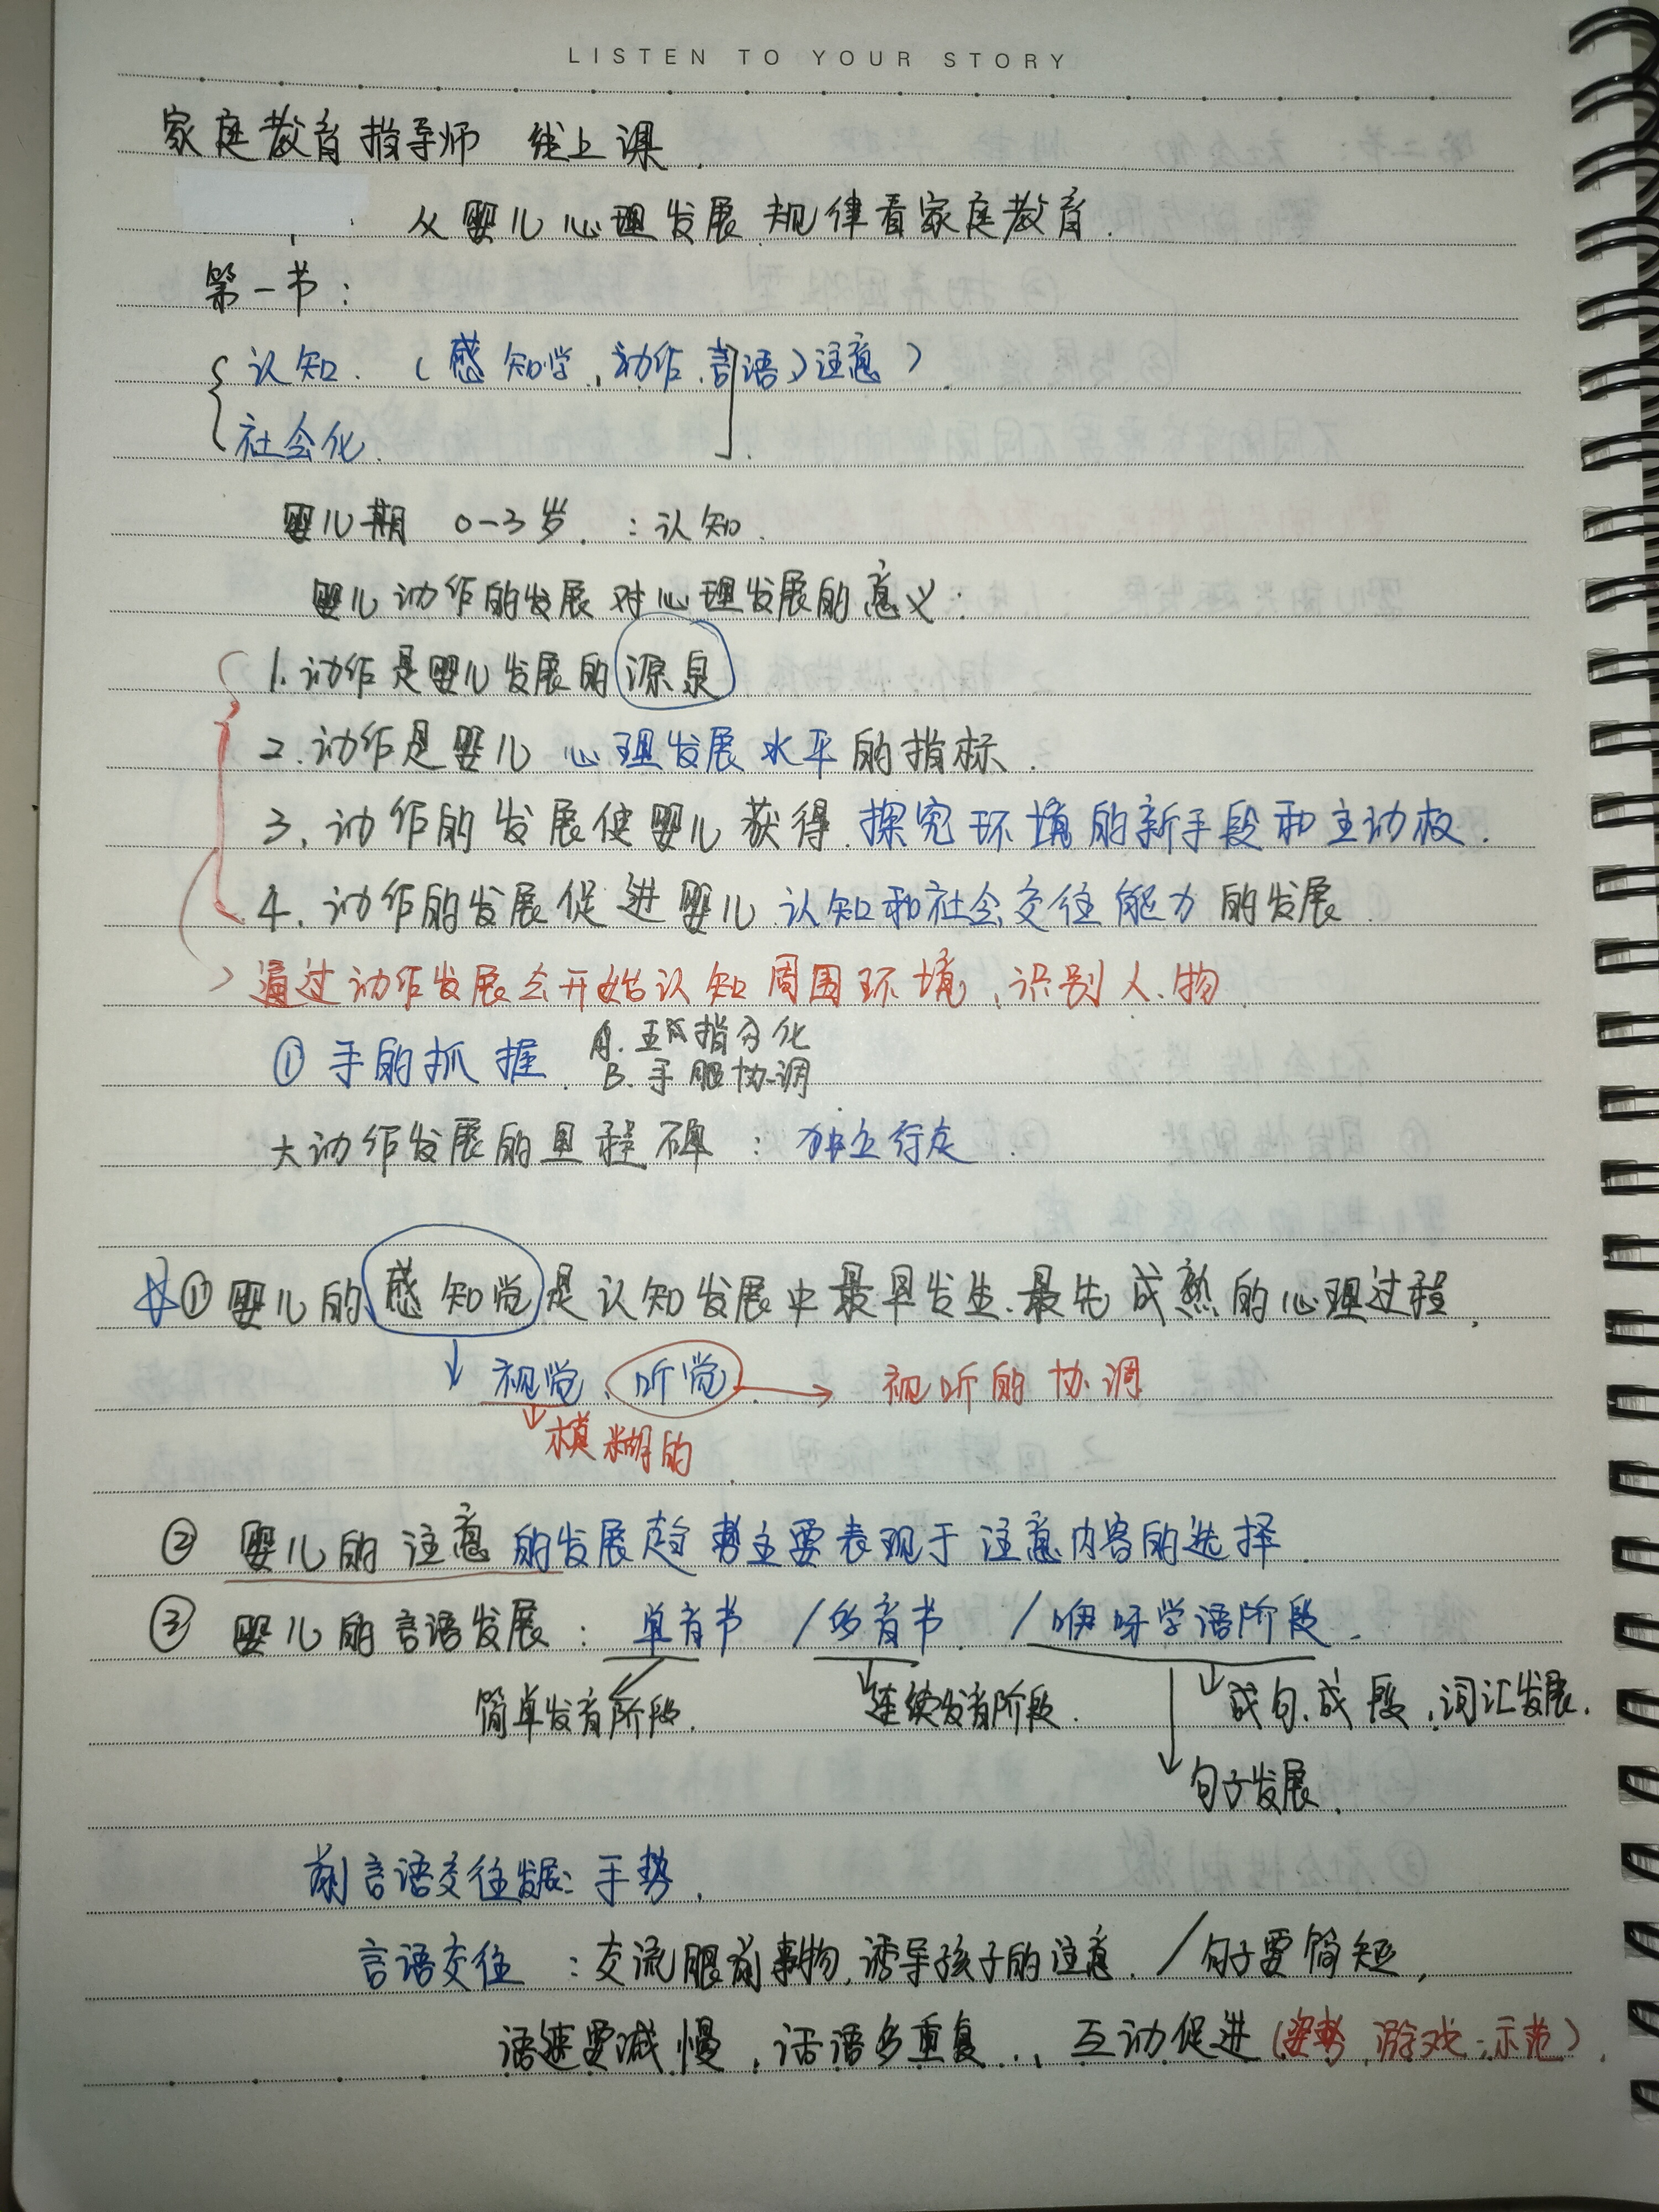 LISTEN TO YOUR STORY
家庭教育指导师 线上课.
从婴儿心理发展规律看家庭教育.
第一节:
认知.(感知学、动作、言语)注意)
社会化.
婴儿期 0-3岁. :认知.
婴儿动作的发展对心理发展的意义:
1.动作是婴儿发展的源泉
2.动作是婴儿心理发展水平的指标.
3.动作的发展使婴儿获得.探究环境的新手段和主动权.
4.动作的发展促进婴儿认知和社会交往能力的发展.
>通过动作发展会开始认知周围环境、识别人、物.
①手的抓握. A.五指分化
B.手眼协调
大动作发展的里程碑:独立行走.
☆①婴儿的感知觉是认知发展中最早发生.最先成熟的心理过程.
↓视觉、听觉→视听的协调
↓模糊的.
②婴儿的注意的发展趋势主要表现于注意内容的选择.
③婴儿的言语发展:单音节/多音节./咿呀学语阶段.
简单发音阶段. 连续发音阶段. 成句、成段、词汇发展.
句子发展.
前言语交往发展:手势.
言语交往:交流眼前事物,诱导孩子的注意./句子要简短,
语速要减慢,话语多重复..、互动促进(姿势、游戏、示范).